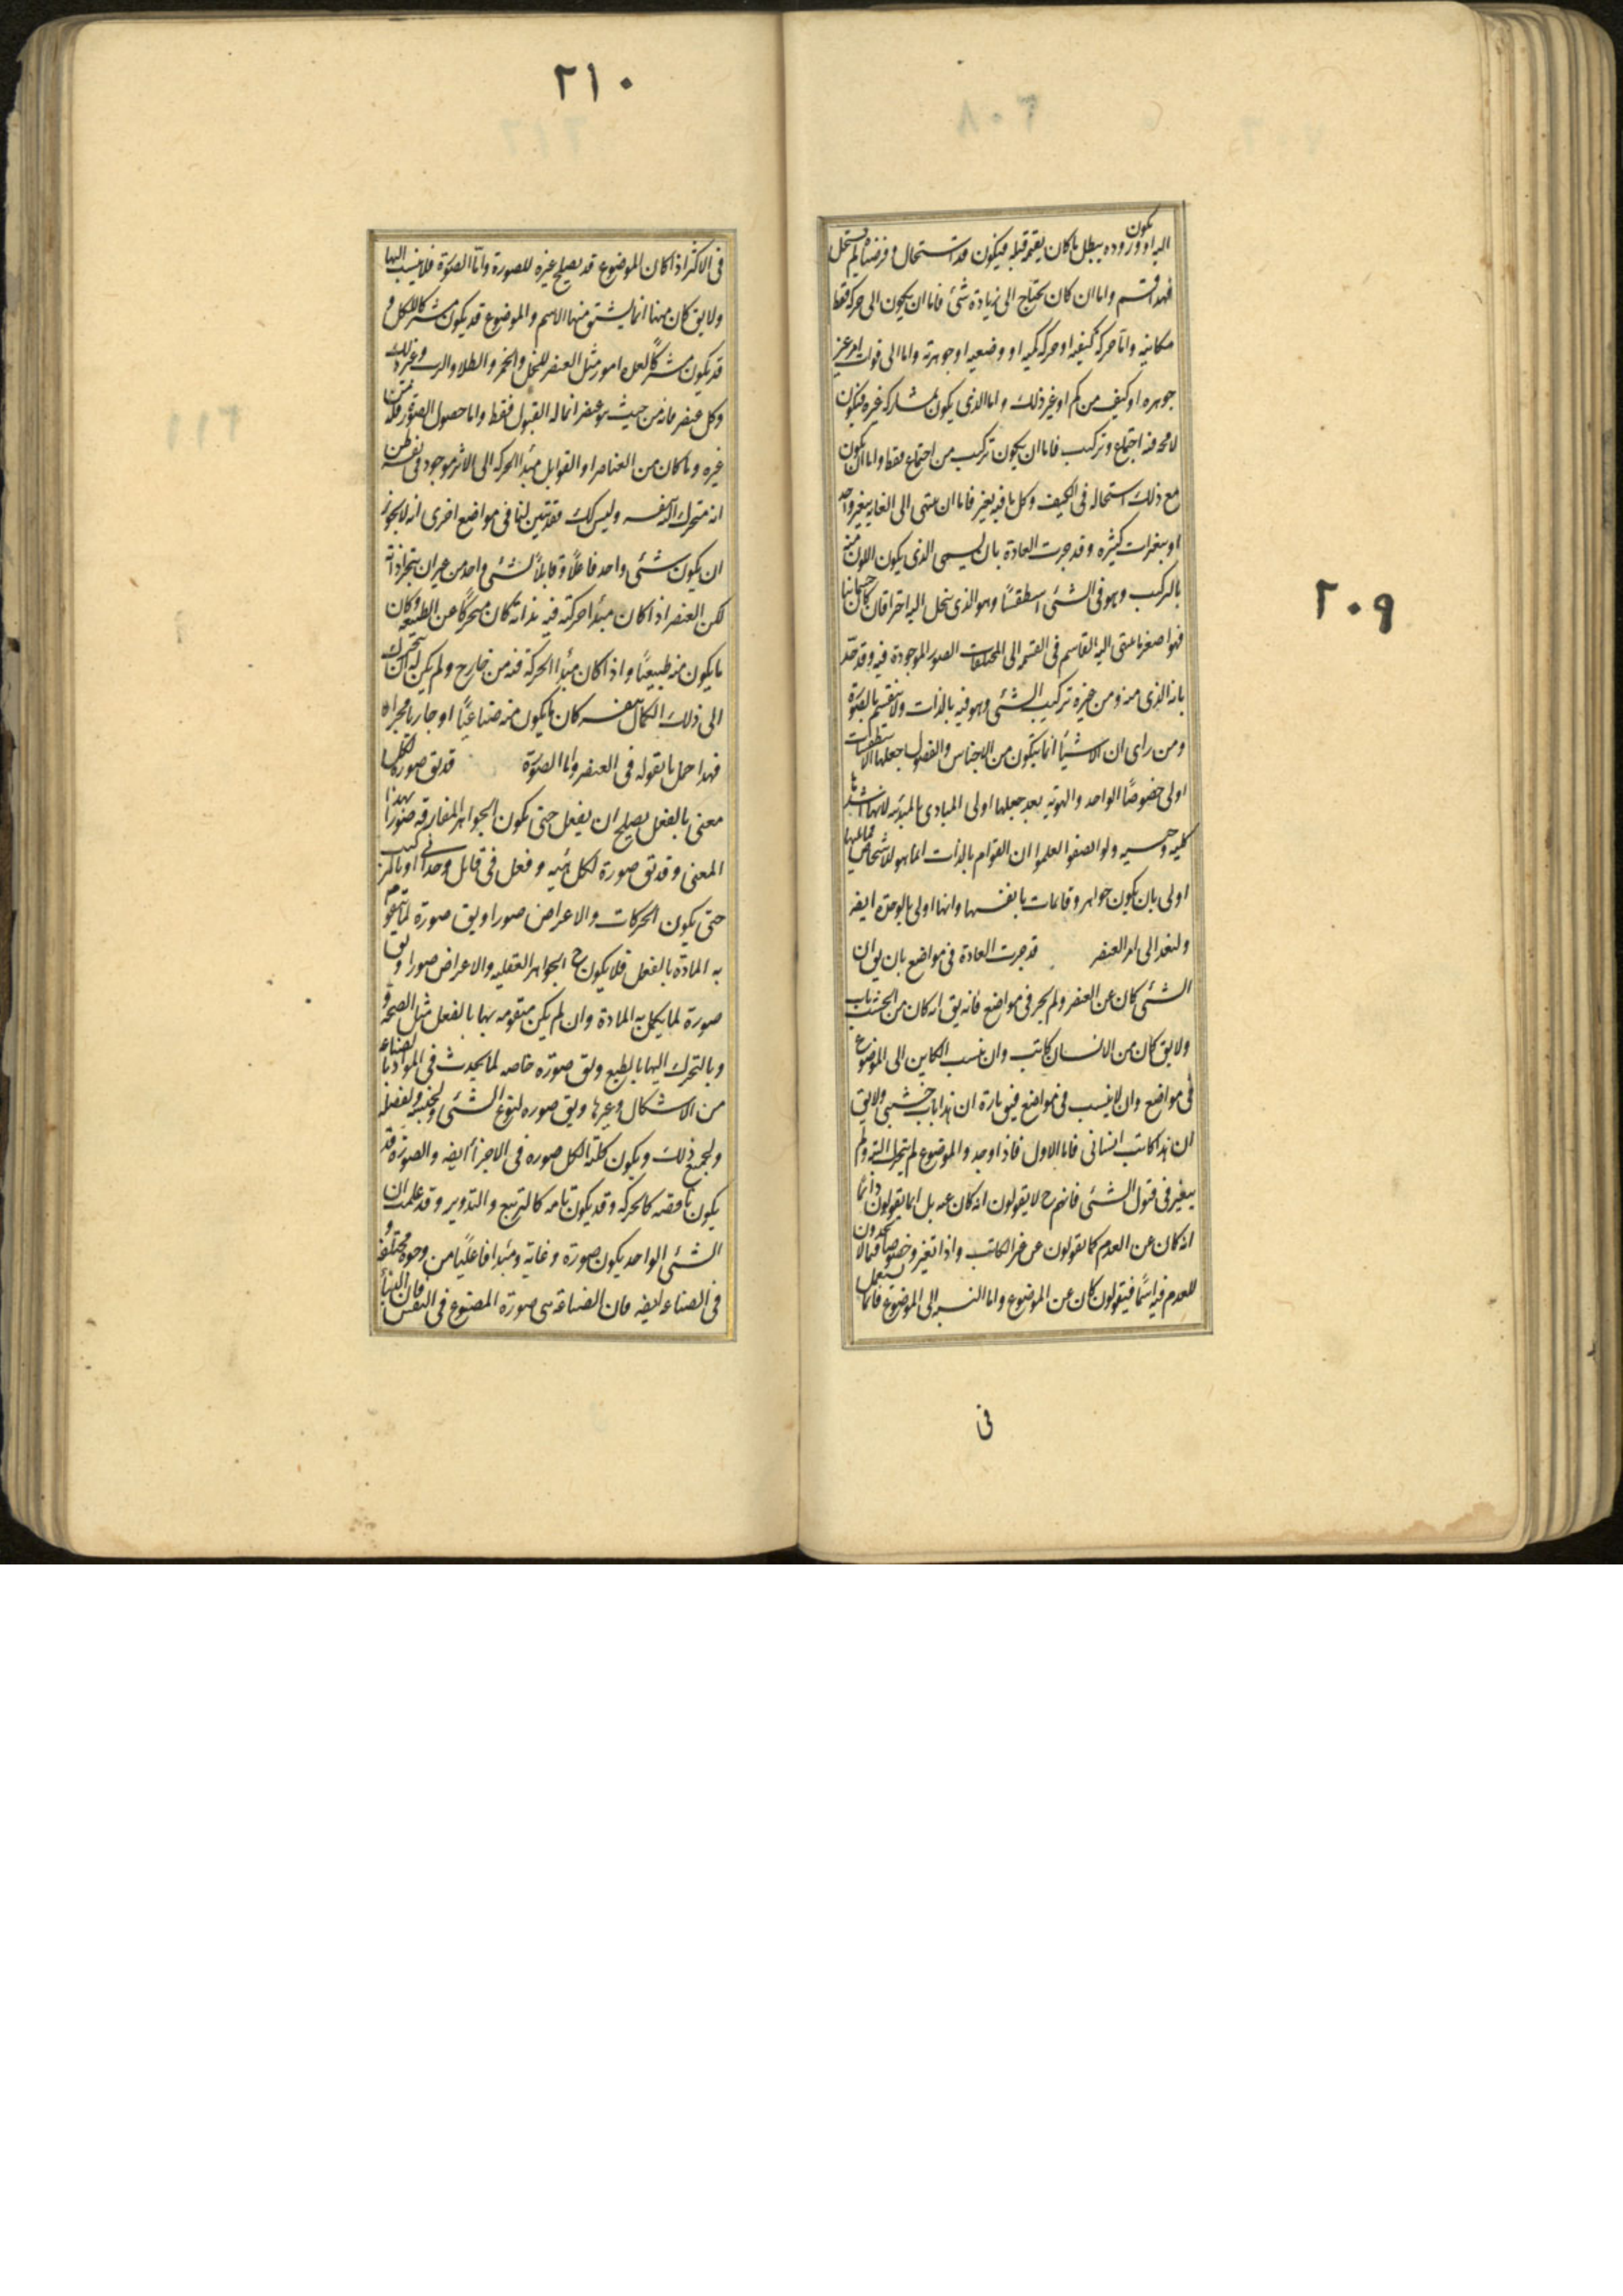 ٢٠٩
اليه او وروده يبطل ما كان يقيمه قبله فيكون قد استحال و فرضناه لم يستحل
فهذا قسم واما ان كان يحتاج الى زيادة شئ فاما ان يكون الى حركة فقط
مكانيه واما حركه كيفيه او حركه كميه او وضعيه او جوهرته واما الى فوات امر عن
جوهره او كيف من كم او غير ذلك واما الذى يكون بمشاركه غيره فيكون
لا محه فيه اجتماع وتركيب فاما ان يكون تركيب من اجتماع فقط واما ان يكون
مع ذلك استحاله فى الكيف وكل ما فيه تغير فاما ان ينتهى الى الغايه بتغير واحد
او بتغيرات كثيره وقد جرت العادة بان يسمى الذى يكون الكون منه
بالتركيب وهو فى الشئ اسطقسًا وهو الذى ينحل اليه اخرا فان كان جسمانيا
فهو اصغر ما ينتهى اليه القاسم فى القسمه الى المختلفات الصور الموجودة فيه وقد حد
بانه الذى منه ومن غيره تركيب الشئ وهو فيه بالذات ولا ينقسم بالصورة
ومن راى ان الاشيأ انما يتكون من الاجناس والفصول جعلها الاسطقسات
اولى خصوصًا الواحد والهويه بعد جعلها اولى المبادى بالمبدئيه لانها اشدها
كليه وجنسيه ولو انصفوا لعلموا ان القوام بالذات انما هو للاشخاص فما يليها
اولى بان يكون جواهر وقائمات بانفسها وانها اولى بالوحدة ايضه
ولنعد الى امر العنصر قد جرت العادة فى مواضع بان يق ان
الشئ كان عن العنصر ولم يجر فى مواضع فانه يق انه كان من الخشب باب
ولا يق كان من الانسان كاتب وان ينسب الكاين الى الموضوع
فى مواضع وان لا ينسب فى مواضع فيق تارة ان هذا باب خشبى ولا يق
ان هذا كاتب انسانى فاما الاول فاذا وجد والموضوع لم يتحرك البته ولم
يتغير فى قبول الشئ فانهم ح لا يقولون انه كان عنه بل انما يقولون دائما
انه كان عن العدم كما يقولون عن غير الكاتب واذا تغير وخصوصا فيما لا يجدون
للعدم فيه اسمًا فيقولون كان عن الموضوع واما النسبه الى الموضوع فانما يستعمل
فى
٢١٠
فى الاكثر اذا كان الموضوع قد يصلح غيره للصورة واما الصورة فلا ينسب اليها
ولا يق كان منها انما يشتق منها الاسم والموضوع قد يكون مشتركا للكل و
قد يكون مشتركًا لعده امور مثل العنصر للخل والخمر والطلا والرب وغير ذلك
وكل عنصر فانه من حيث هو عنصر انما له القبول فقط واما حصول الصورة فله من
غيره وما كان من العناصر او القوابل مبدأ الحركه الى الاثر موجود فى نفسه ظن
انه متحرك اليه بنفسه وليس كك فقد تبين لنا فى مواضع اخرى انه لا يجوز
ان يكون شئ واحد فاعلًا وقابلًا لشئ واحد من غير ان يتجزا ذاته
لكن العنصر اذا كان مبدأ حركته فيه بذاته كان متحركًا عن الطبيعه وكان
ما يكون منه طبيعيًا واذا كان مبدأ الحركة فيه من خارج ولم يكن له ان يتحرك
الى ذلك الكمال بنفسه كان ما يكون منه صناعيًا او جاريا مجراه
فهذا جمل ما نقوله فى العنصر واما الصورة قد يق صورة لكل
معنى بالفعل يصلح ان يفعل حتى يكون الجواهر المفارقه صورًا بهذا
المعنى وقد يق صورة لكل هيئه و فعل فى قابل وحدانى او بالتركيب
حتى يكون الحركات والاعراض صورا ويق صورة لما يتقوم
به المادة بالفعل فلا يكون ح الجواهر العقليه والاعراض صورا ويق
صورة لما يكمل به المادة وان لم يكن متقومه بها بالفعل مثل الصحه و
وبالتحرك اليها بالطبع ويق صورة خاصه لما يحدث فى المواد بالصناعه
من الاشكال وغيرها ويق صوره لنوع الشئ ولجنسه ولفصله
ولجميع ذلك ويكون كلية الكل صوره فى الاجزأ ايضه والصورة قد
يكون ناقصه كالحركه وقد يكون تامه كالتربيع والتدوير وقد علمت ان
الشئ الواحد يكون صورة وغاية ومبدا فاعليًا من وجوه مختلفه و
فى الصناعه ايضه فان الصناعة هى صورة المصنوع فى النفس فان البنأ